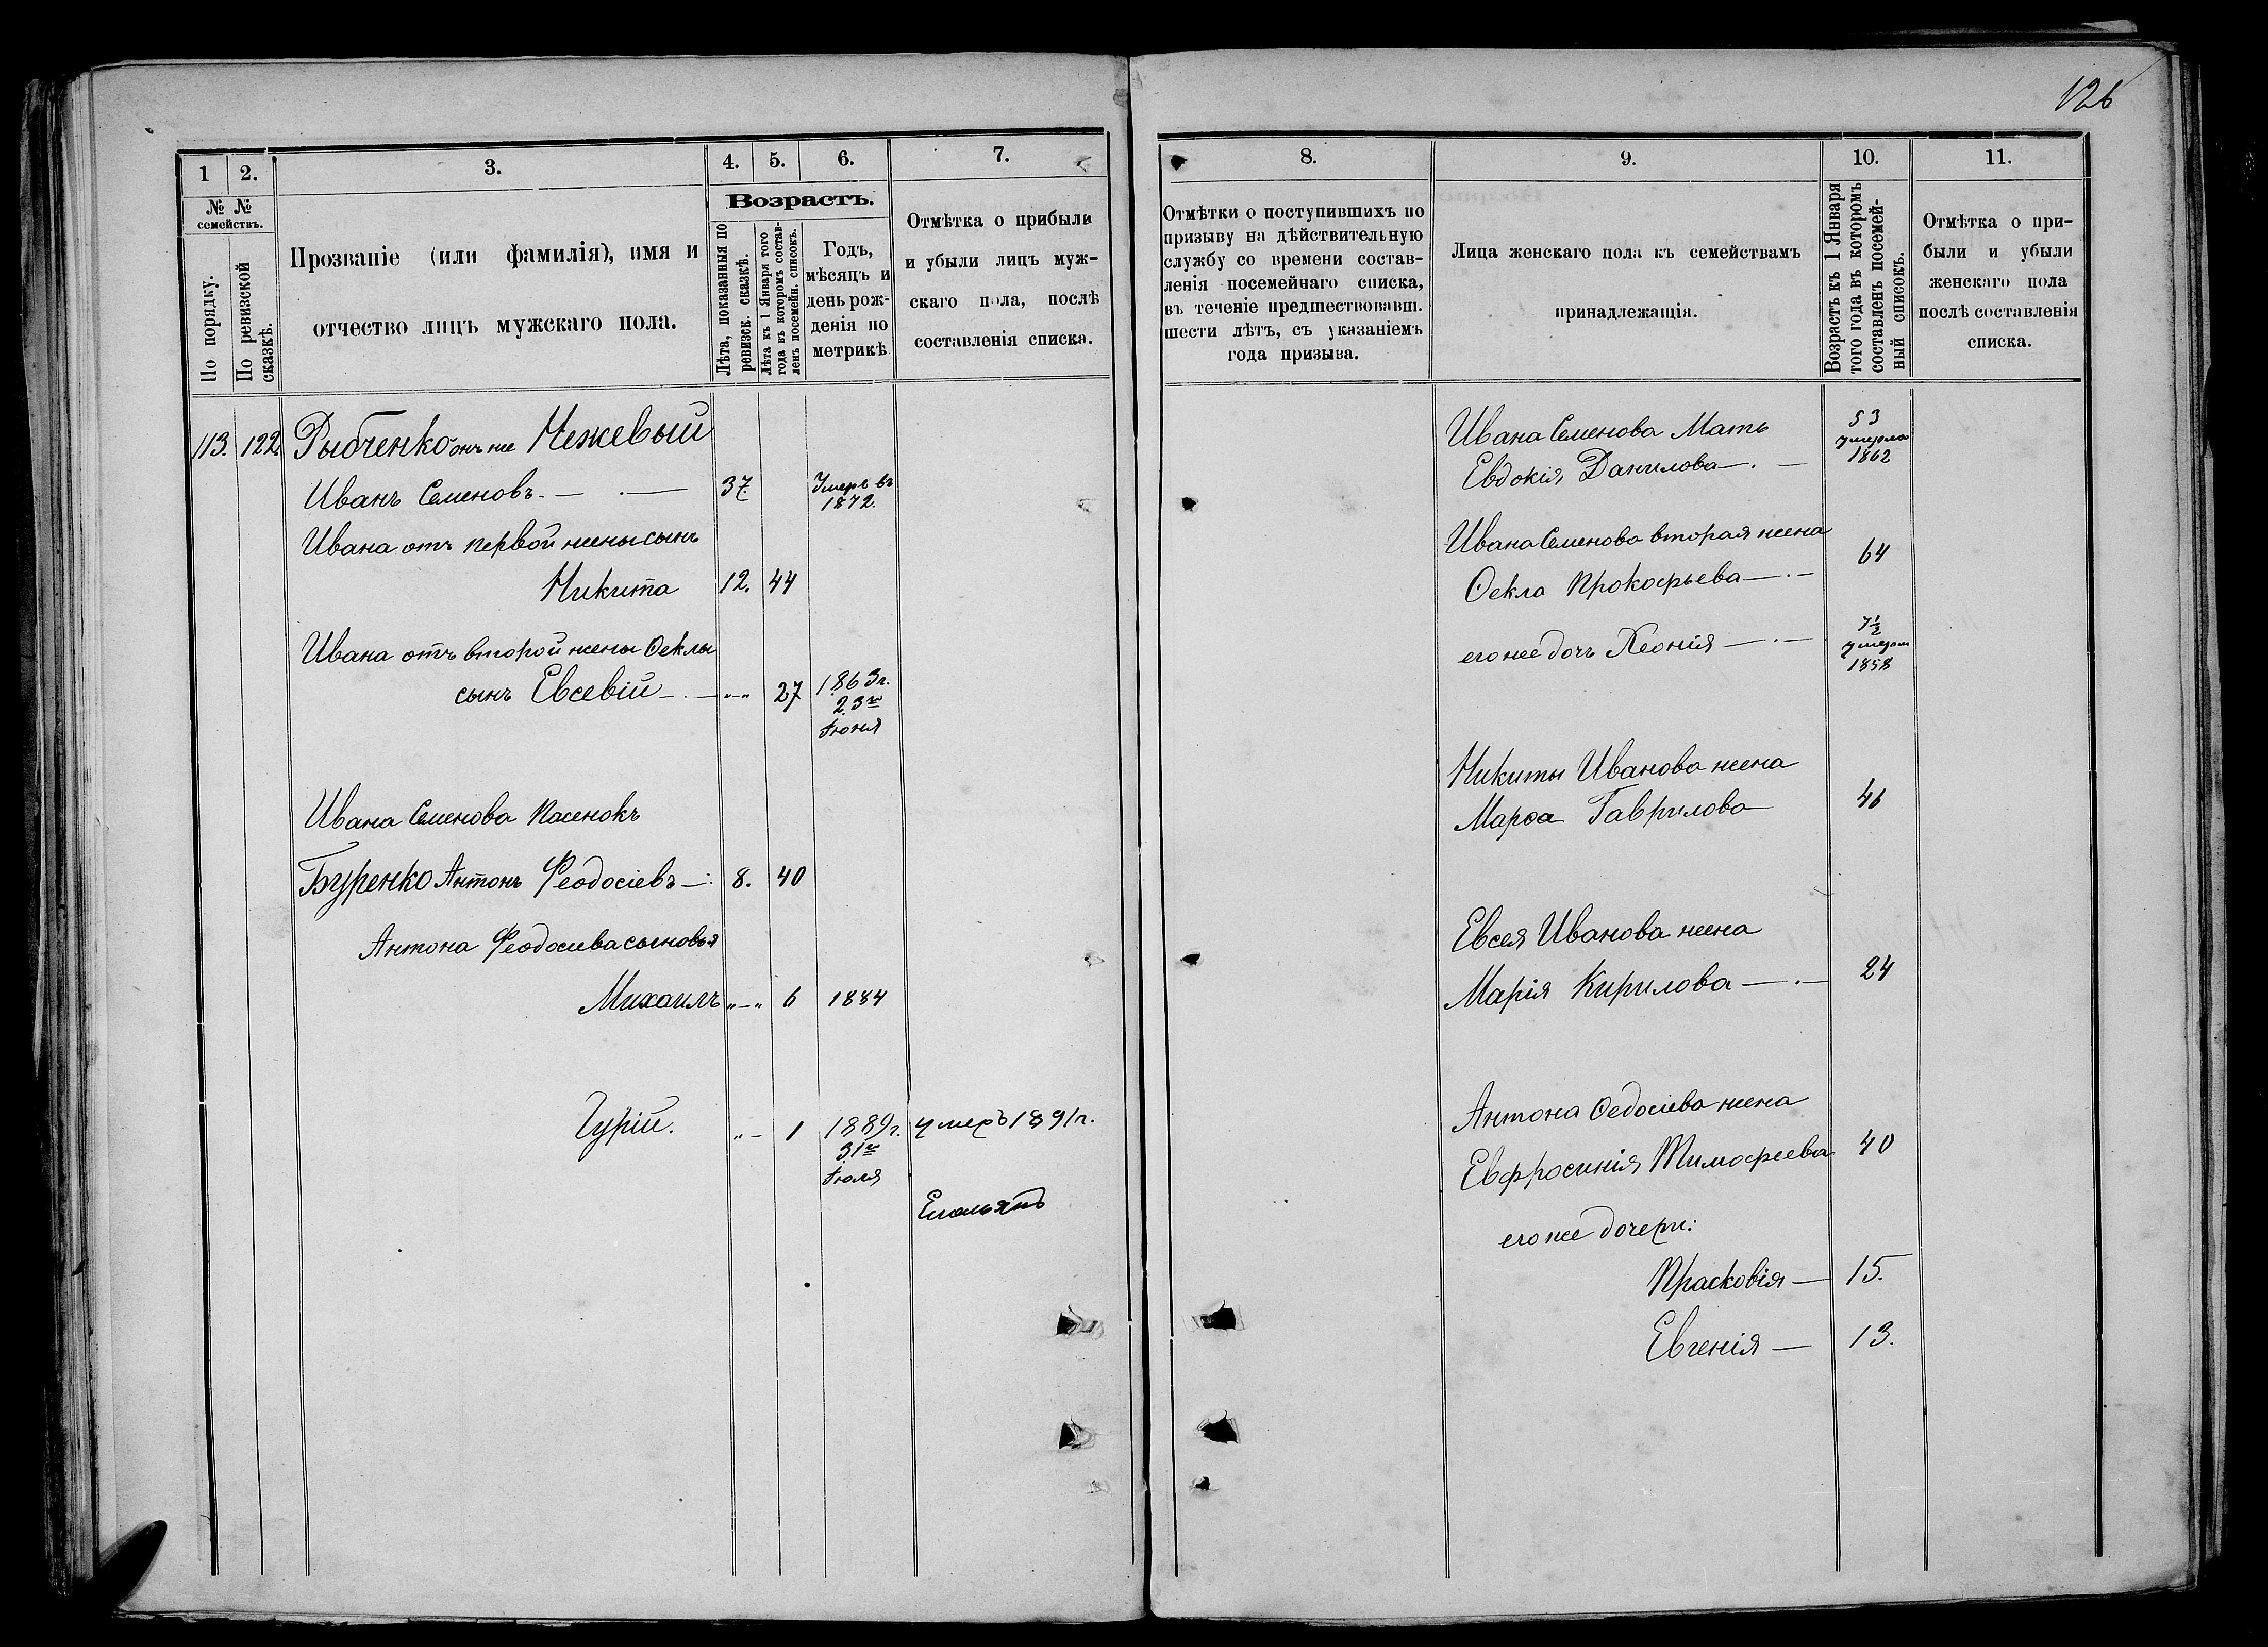 126
1
2.
3.
4.
5.
6.
7.
№ №
семействъ.
По порядку.
По ревизской
сказкѣ.
Прозваніе (или фамилія), имя и
отчество лицъ мужскаго пола.
Возрастъ.
Лѣта, показанныя по
ревизск. сказкѣ.
Лѣта къ 1 Января того
года въ которомъ состав-
ленъ посемейн. списокъ.
Годъ,
мѣсяцъ и
день рож-
денія по
метрикѣ
Отмѣтка о прибыли
и убыли лицъ муж-
скаго пола, послѣ
составленія списка.
113. 122 Рыбченко онъ же Нежевый
Иванъ Семеновъ. — . — 37. Умеръ въ
1872.
Ивана отъ первой жены сынъ
Никита 12. 44
Ивана отъ второй жены Ѳеклы
сынъ Евсевій — . — „—„ 27 1863 г.
23го
Іюня
Ивана Семенова Пасенокъ
Буренко Антонъ Феодосіевъ —: 8. 40
Антона Феодосиева сыновья
Михаилъ „—„ 6 1884
Гурій. „— 1 1889 г. умеръ 1891 г.
31го
Іюля
Емельянъ
8.
9.
10.
11.
Отмѣтки о поступившихъ по
призыву на дѣйствительную
службу со времени состав-
ленія посемейнаго списка,
въ теченіе предшествовавш.
шести лѣтъ, съ указаніемъ
года призыва.
Лица женскаго пола къ семействамъ
принадлежащія.
Возрастъ къ 1 Января
того года въ которомъ
составленъ посемей-
ный списокъ.
Отмѣтка о при-
были и убыли
женскаго пола
послѣ составленія
списка.
Ивана Семенова Мать 53
Евдокія Данилова — . — умерла
1862
Ивана Семенова вторая жена
Ѳекла Прокофьева — . — 64
его же дочь Хеонія — . — 7½
умерла
1858
Никиты Иванова жена
Марѳа Гаврилова — 46
Евсея Иванова жена
Марія Кирилова — . — 24
Антона Ѳедосіева жена
Евфросинія Тимофеева 40
его же дочери:
Прасковія — 15.
Евгенія — 13.